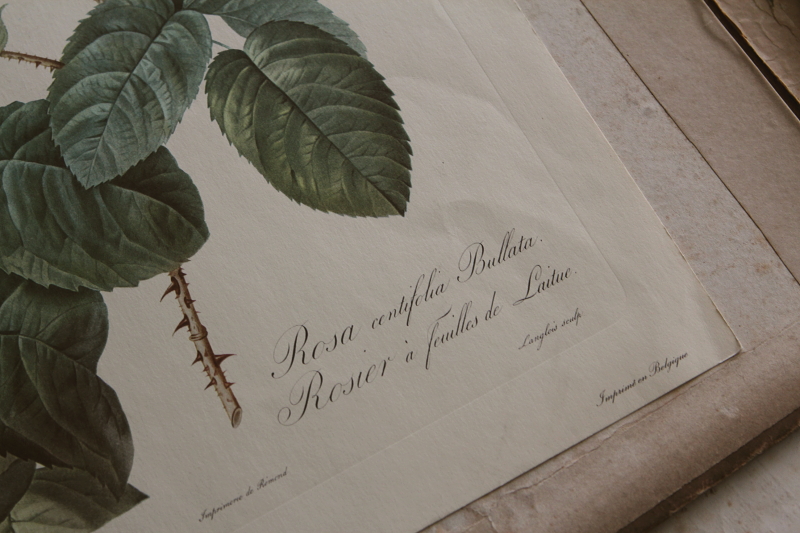 Rosa centifolia Bullata.
Rosier à feuilles de Laitue.
Langlois sculp.
Imprimerie de Rémond
Imprimé en Belgique